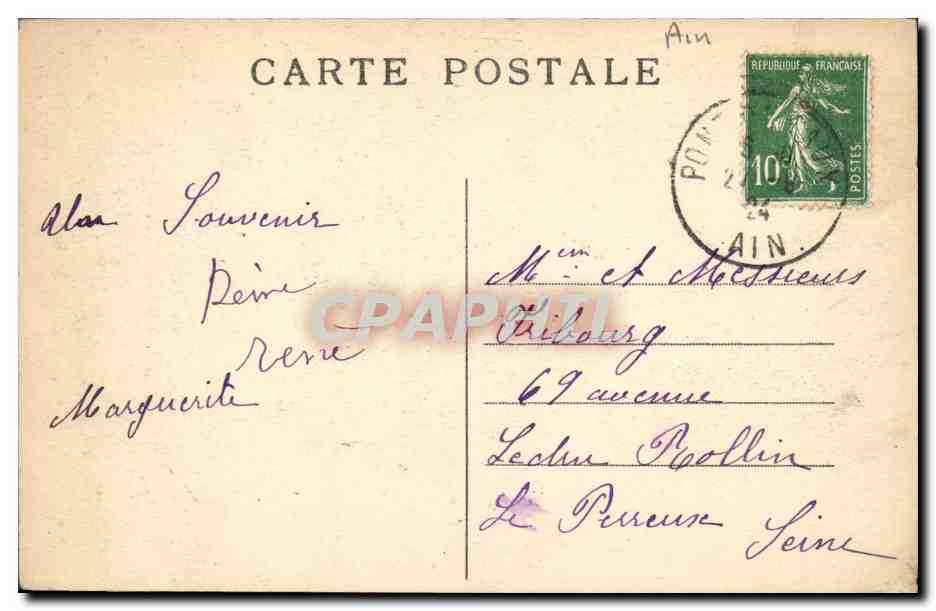 Ain
CARTE POSTALE
REPUBLIQUE FRANÇAISE
10c
POSTES
PON
24
AIN
Souvenir
René
Marguerite
CPAPHIL
Mem et Messieurs
Fribourg
69 avenue
Ledru Rollin
Le Perreux
Seine